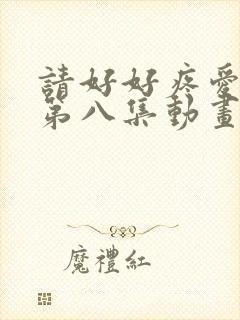 請好好疼愛
第八集動畫
魔禮紅